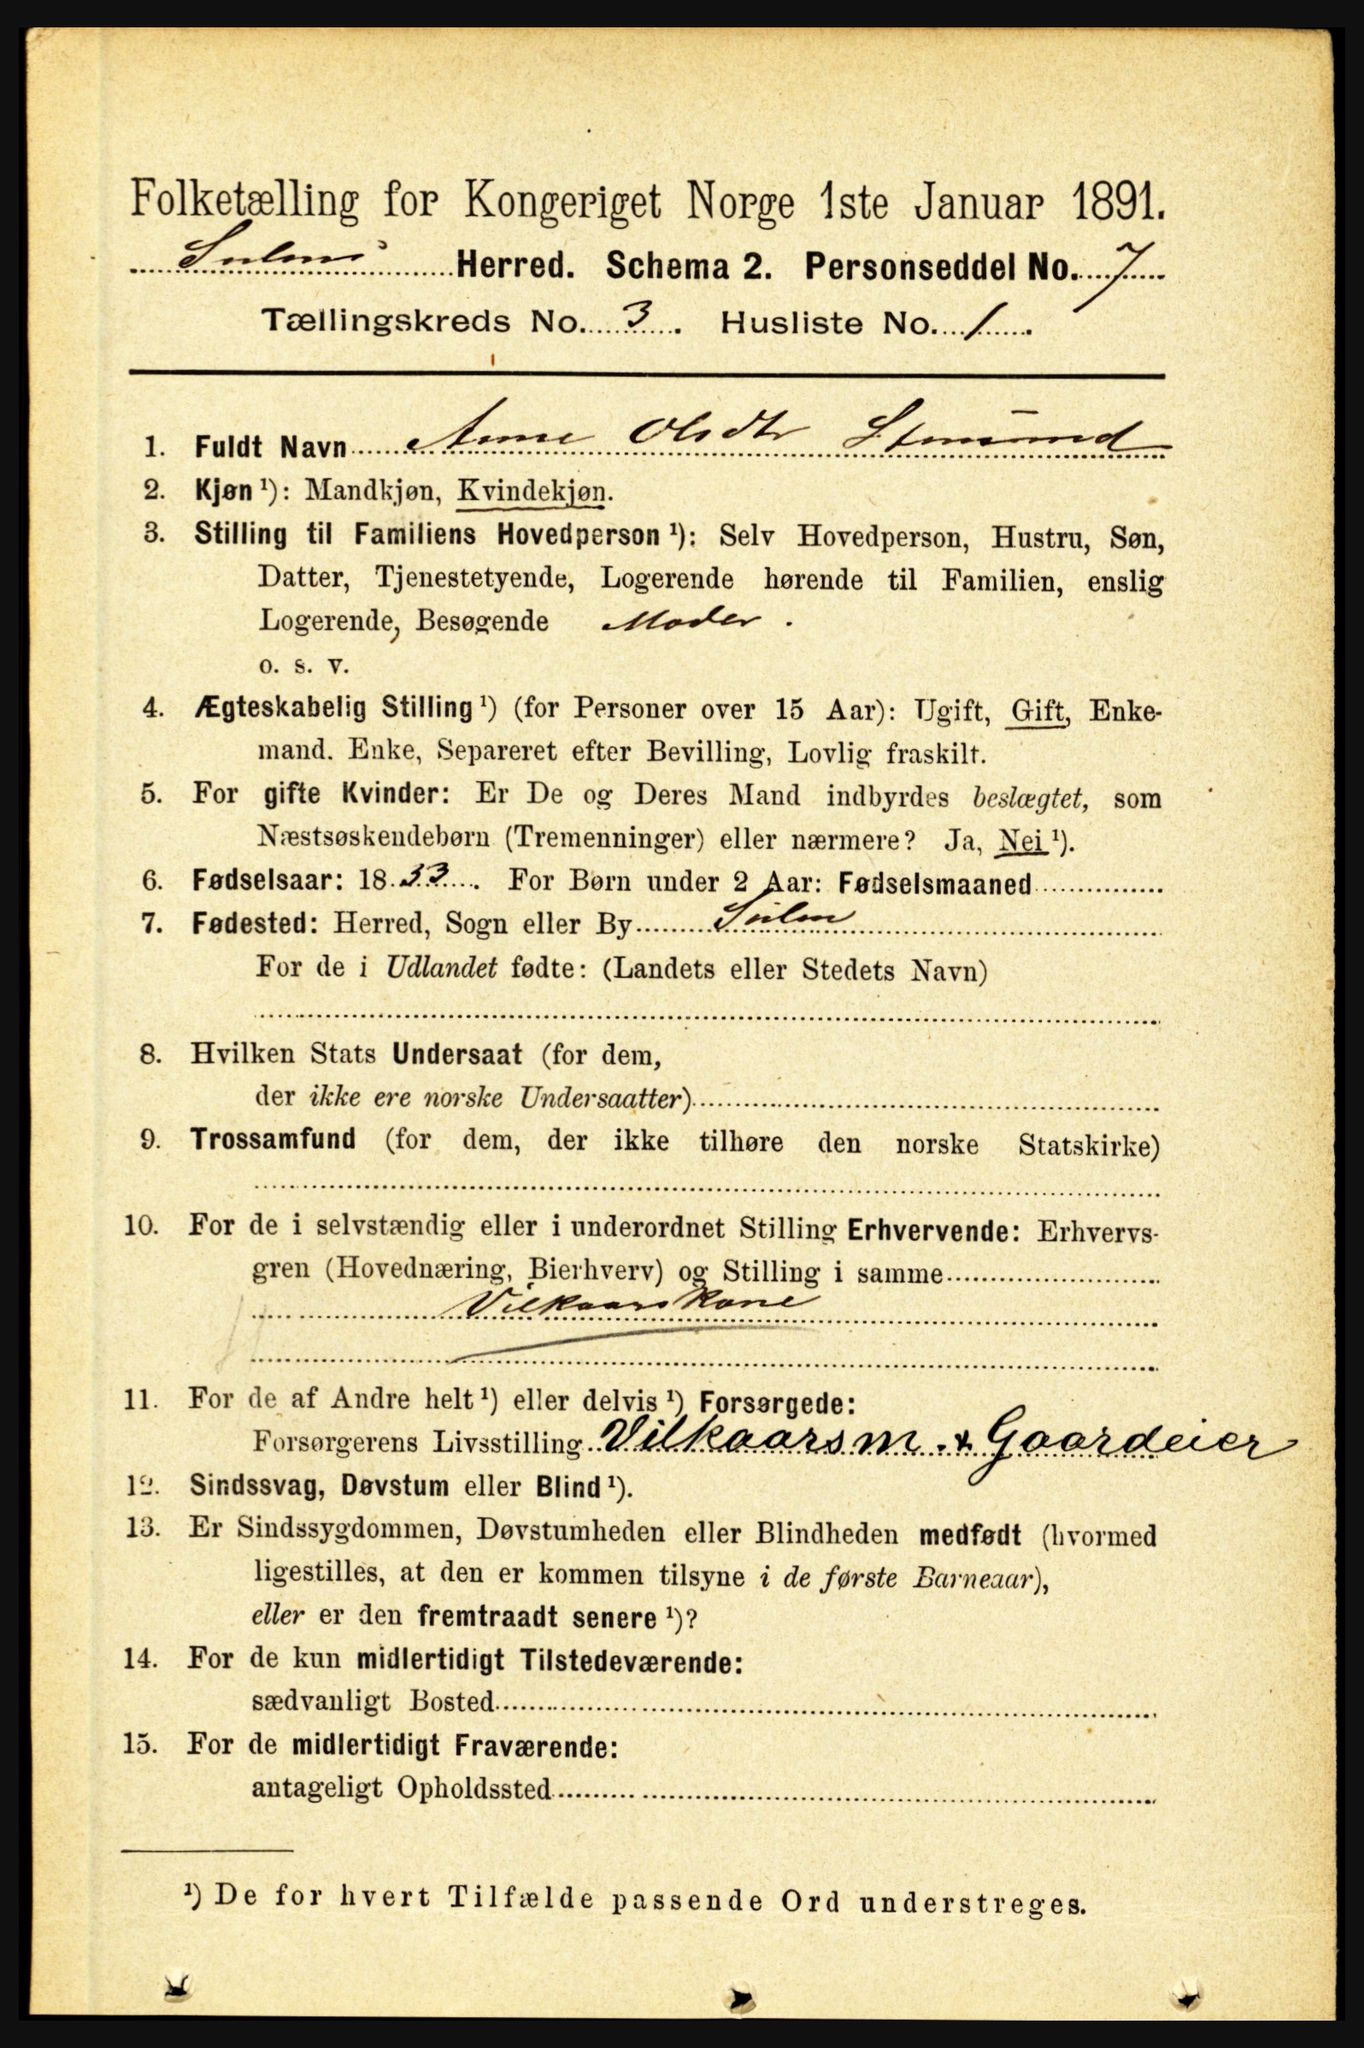 Folketælling for Kongeriget Norge 1ste Januar 1891.
Herred. Schema 2. Personseddel No. 7
Tællingskreds No. 3. Husliste No. 1.
1. Fuldt Navn Anne Olsdtr
2. Kjøn ¹): Mandkjøn, Kvindekjøn.
3. Stilling til Familiens Hovedperson ¹): Selv Hovedperson, Hustru, Søn,
Datter, Tjenestetyende, Logerende hørende til Familien, enslig
Logerende, Besøgende Moder.
o. s. v.
4. Ægteskabelig Stilling ¹) (for Personer over 15 Aar): Ugift, Gift, Enke-
mand. Enke, Separeret efter Bevilling, Lovlig fraskilt.
5. For gifte Kvinder: Er De og Deres Mand indbyrdes beslægtet, som
Næstsøskendebørn (Tremenninger) eller nærmere? Ja, Nei ¹).
6. Fødselsaar: 1833. For Børn under 2 Aar: Fødselsmaaned
7. Fødested: Herred, Sogn eller By Sulen
For de i Udlandet fødte: (Landets eller Stedets Navn)
8. Hvilken Stats Undersaat (for dem,
der ikke ere norske Undersaatter)
9. Trossamfund (for dem, der ikke tilhøre den norske Statskirke)
10. For de i selvstændig eller i underordnet Stilling Erhvervende: Erhvervs-
gren (Hovednæring, Bierhverv) og Stilling i samme
Vilkaarskone
11. For de af Andre helt ¹) eller delvis ¹) Forsørgede:
Forsørgerens Livsstilling Vilkaarsm. & Gaardeier
12. Sindssvag, Døvstum eller Blind ¹).
13. Er Sindssygdommen, Døvstumheden eller Blindheden medfødt (hvormed
ligestilles, at den er kommen tilsyne i de første Barneaar),
eller er den fremtraadt senere ¹)?
14. For de kun midlertidigt Tilstedeværende:
sædvanligt Bosted
15. For de midlertidigt Fraværende:
antageligt Opholdssted
¹) De for hvert Tilfælde passende Ord understreges.